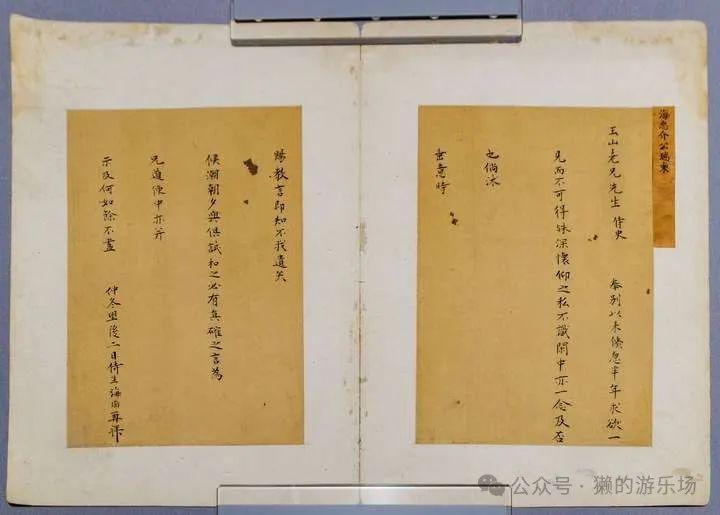 海忠介公瑞柬
玉山老兄先生 侍史 奉別以来倏忽半年求欲一
見而不可得殊深懷仰之私不識閑中亦一念及否
也倘沐
垂意時
賜教言即知不我遺矣
候潮朝夕與俱試和之必有真確之言為
兄道便中亦并
示及何如餘不盡 仲冬望後二日侍生海瑞再拜
公众号·獭的游乐场